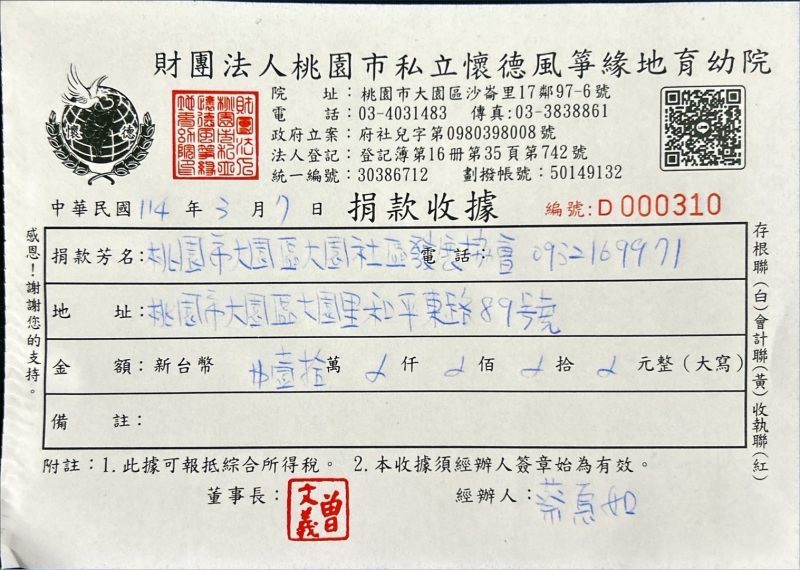 財團法人桃園市私立懷德風箏緣地育幼院
懷德
財團法人桃園市私立懷德風箏緣地育幼院
院　　址：桃園市大園區沙崙里17鄰97-6號
電　　話：03-4031483　傳真:03-3838861
政府立案：府社兒字第0980398008號
法人登記：登記簿第16冊第35頁第742號
統一編號：30386712　劃撥帳號：50149132
中華民國 114 年 3 月 7 日 捐款收據 編號:D 000310
捐款芳名:桃園市大園區大園社區發展協會 電　話: 0932169971
地　　址:桃園市大園區大園里和平東路89號
金　　額：新台幣 壹拾萬 仟 佰 拾 元整（大寫）
備　　註：
附註：1.此據可報抵綜合所得稅。 2.本收據須經辦人簽章始為有效。
董事長： 曾文義 經辦人： 蔡惠如
感恩！謝謝您的支持。
存根聯（白）會計聯（黃）收執聯（紅）